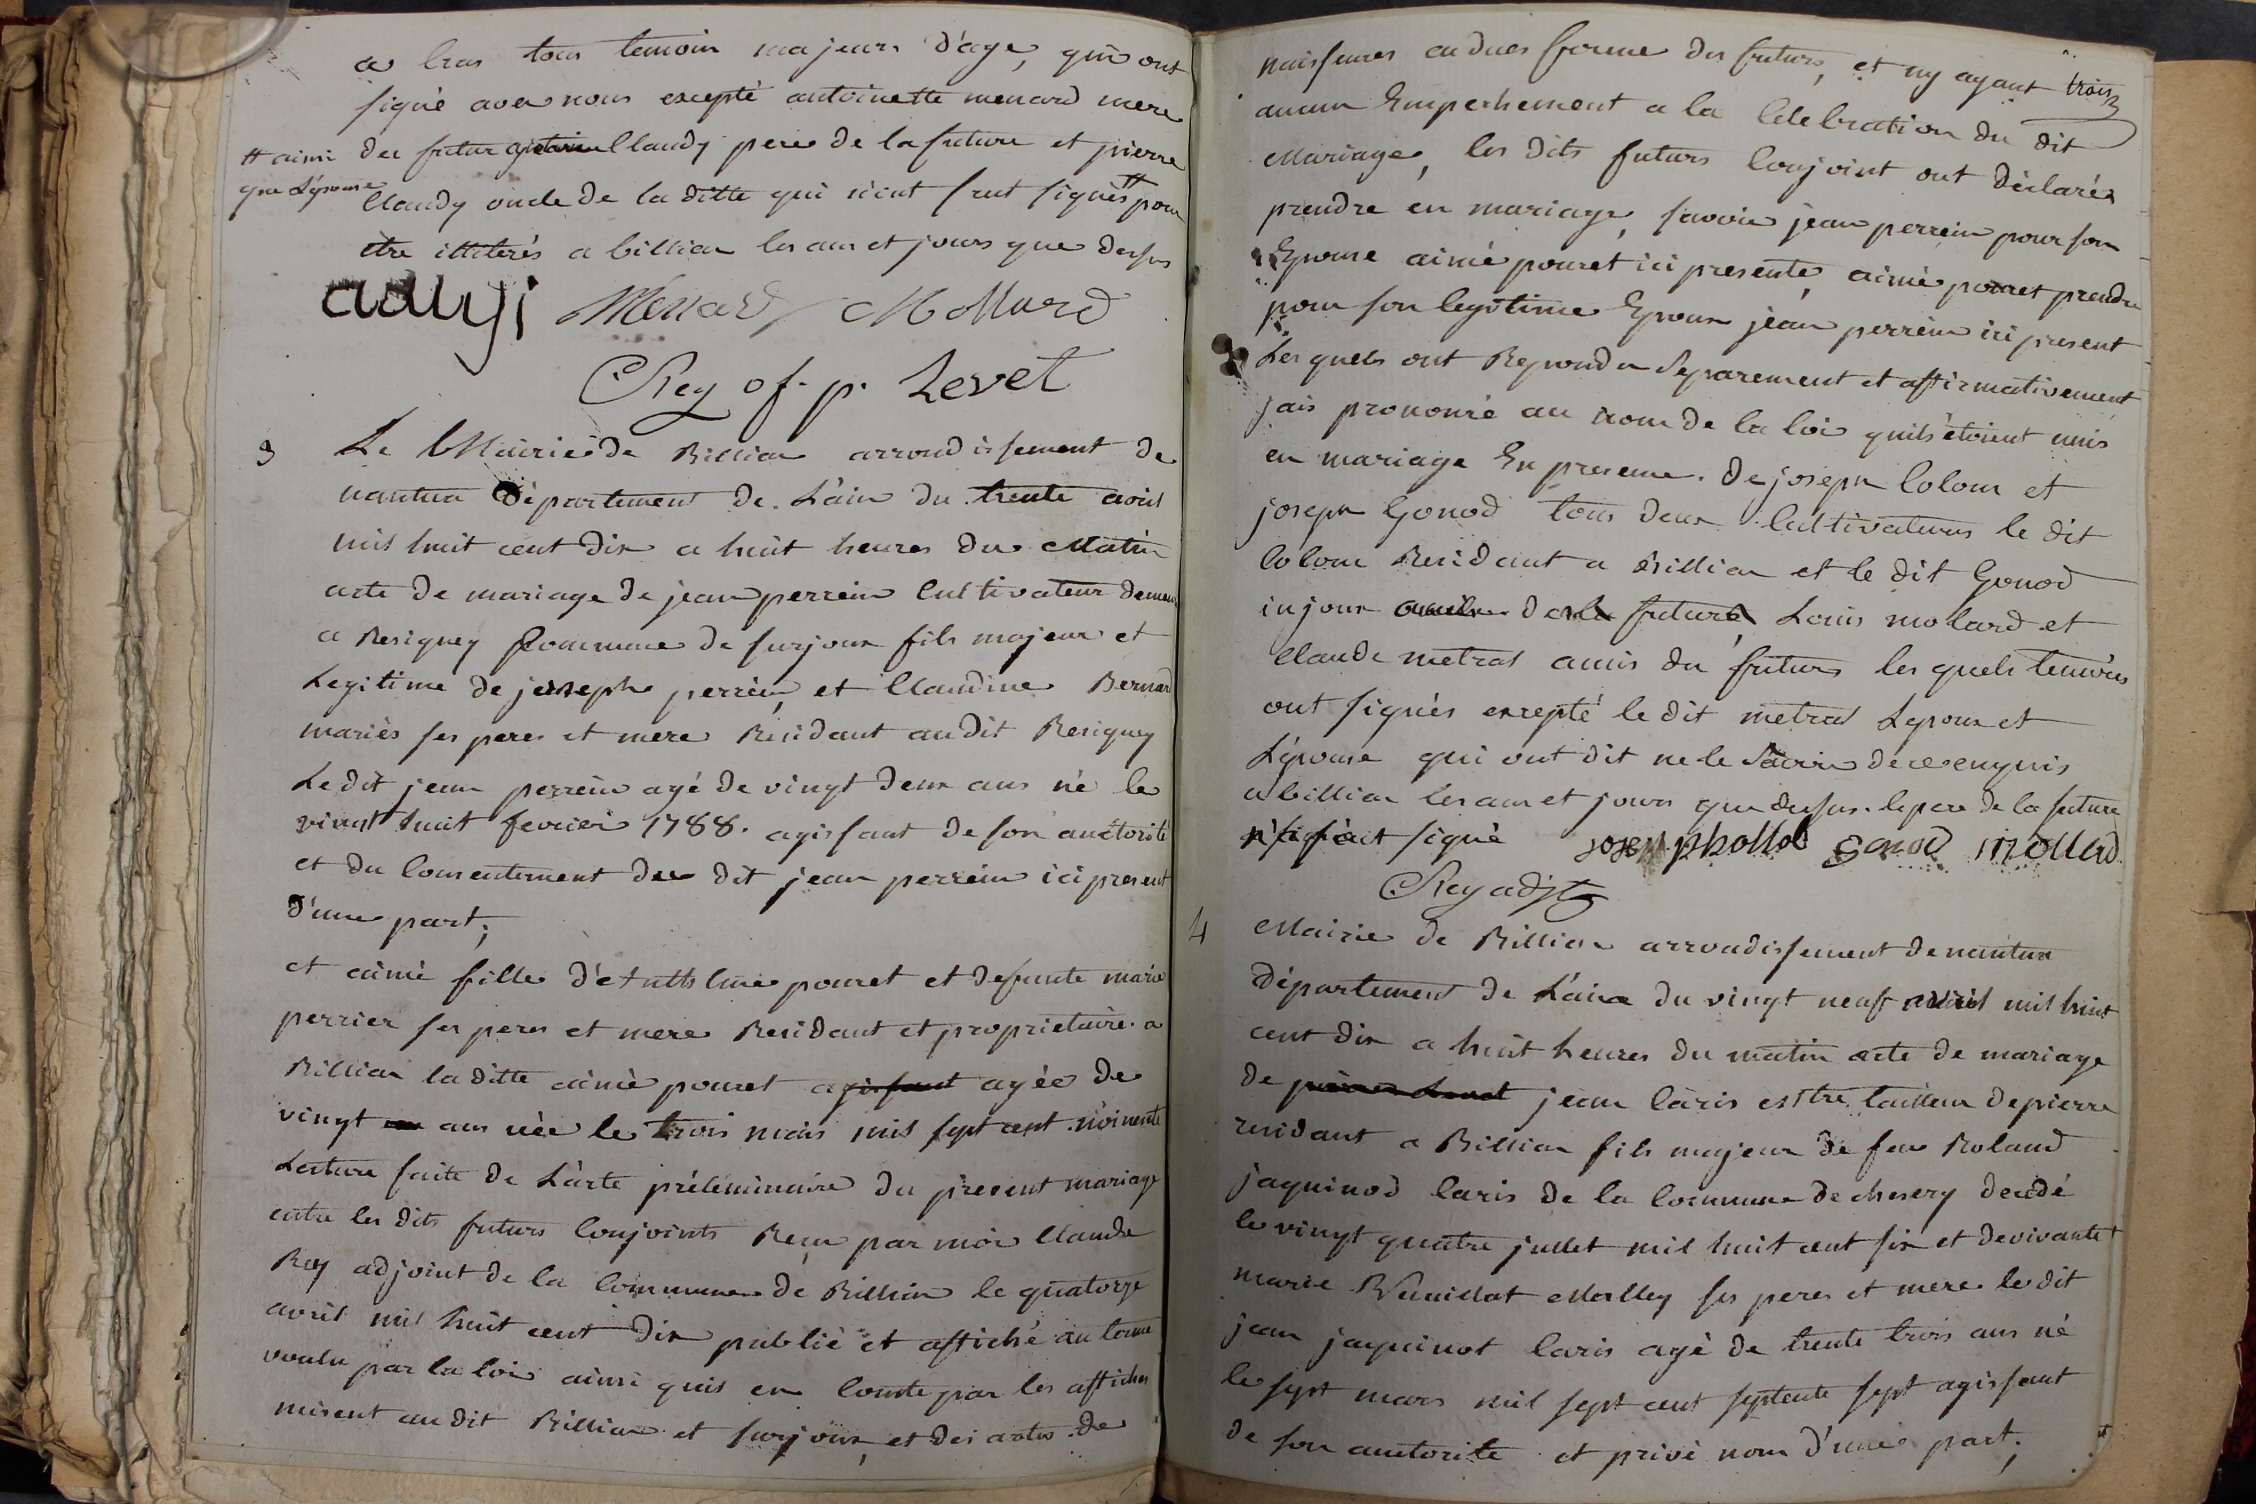 a bras tous temoin majeurs d'age, qui ont
signé avec nous excepté antoinette menard mere
du futur Claudy pere de la future et pierre
# ainsi
que L'epouse
Claudy oncle de la ditte qui n'ont scut signés # pour
etre illiterés a billiar les an et jours que dessus
Menard Mollard
CRey of. p. Levet
3
Le Mairie de Billiar arrondissement de
nantua département de L'ain du trente avril
mil huit cent dix a huit heures du Matin
acte de mariage de jean perrein Cultivateur demeu
a Resigney Commune de surjoux fils majeur et
Legitime de joseph perrein, et Claudine Bernard
mariés ses peres et mere Residant audit Resigney
Le dit jean perrein agé de vingt deux ans né le
vingt huit fevrier 1788. agissant de son auctorité
et du Consentement du dit jean perrein ici present
d'une part;
et aimé fille d' pouret et defunte marie
perrier ses peres et mere Residant et proprietaire a
Billiar la ditte aimé pouret agissant agée de
vingt ans née le trois mars mil sept cent nonente
Lecture faite de L'acte préleminaire du present mariage
entre les dits futurs Conjoints Reçu par moi Claude
Rey adjoint de la Commune de Billiar le quatorze
avril mil huit cent dix publié et affiché au terme
voulu par la loi ainsi quil en Conste par les affiches
misent au dit Billiar et surjoux, et des actes de
naissances en dues forme des futurs, et ny ayant
trois
aucun Empechement a la Celebration du dit
Mariage, les dits futurs Conjoint ont déclarés
prendre en mariage, savoir jean perrein pour son
Epouse aimé pouret ici presente, aimé pouret prendre
pour son legitime Epoux jean perrein ici present
Lesquels ont Repondu Separement et affirmativement
jais prononcé au nom de la loi quils étoient unis
en mariage En presence de joseph Colom et
joseph Gonod tous deux Cultivateurs le dit
Colom Residant a Billiar et le dit Gonod
injoux de la future, Louis molard et
Claude metral amis du futurs les quels temoins
ont signés excepté le dit metral Lepoux et
L'epouse qui ont dit ne le Savoir de ce enquis
a billiar les an et jours que dessus. le pere de la future
signé Gonod mollard
CRey adjt
4
Mairie de Billiar arrondissement de nantua
Département de L'ain du vingt neuf avril mil huit
cent dix a huit heures du matin acte de mariage
de jean Caris tailleur de pierre
residant a Billiar fils majeur de feu Roland
jaquinod Caris de la Commune de chesery decédé
le vingt quatre jullet mil huit cent six et de vivante
marie Malley ses peres et mere le dit
jean jaquinot Caris agé de trente trois ans né
le sept mars mil sept cent septente sept agissant
de son auctorite et privé nom d'une part;